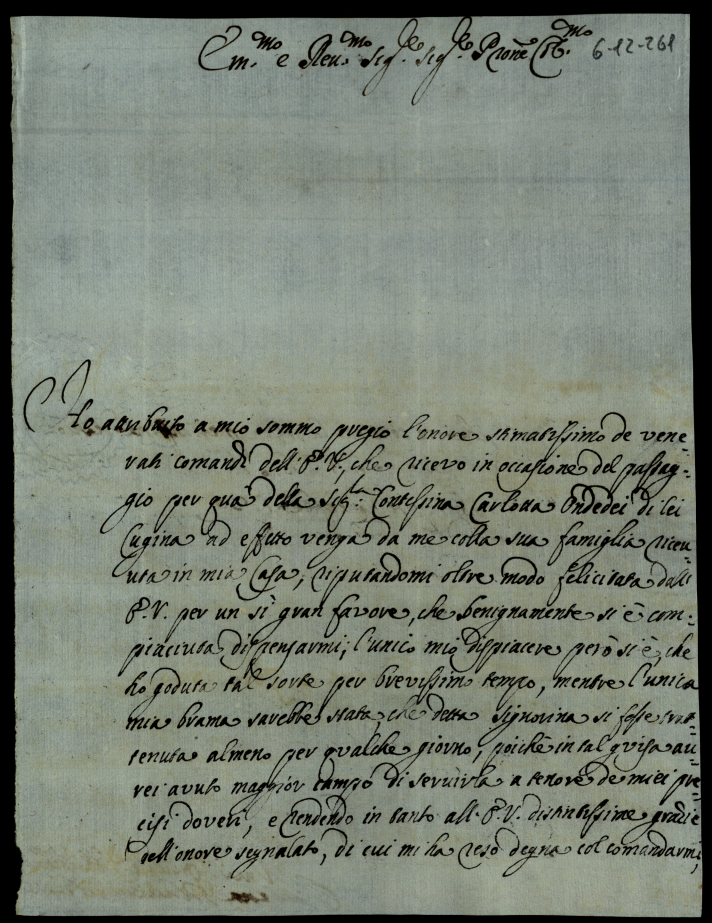 Em.mo e Rev.mo Sig.re Sig.re Prone Col.mo 6-12-261
Io attribuito a mio sommo pregio l'onore stimatissimo de vene=
rati comandi dell'E.V., che ricevo in occasione del passag=
gio per quà della Sig.ra Contessina Carlotta Ondedei di lei
Cugina ad effetto venga da me colla sua famiglia riceu=
uta in mia Casa, riputandomi oltre modo felicitata dall'
E.V. per un sì gran favore, che benignamente si è com=
piaciuta dispensarmi; l'unico mio dispiacere però si è, che
ho goduta tal sorte per brevissimo tempo, mentre l'unica
mia brama sarebbe stata, che detta Signorina si fosse trat=
tenuta almeno per qualche giorno, poichè in tal guisa au=
rei avuto maggior campo di servirla a tenore de miei pre=
cisi doveri, e rendendo in tanto all'E.V. distintissime grazie
dell'onore segnalato, di cui mi ha reso degna col comandarmi,